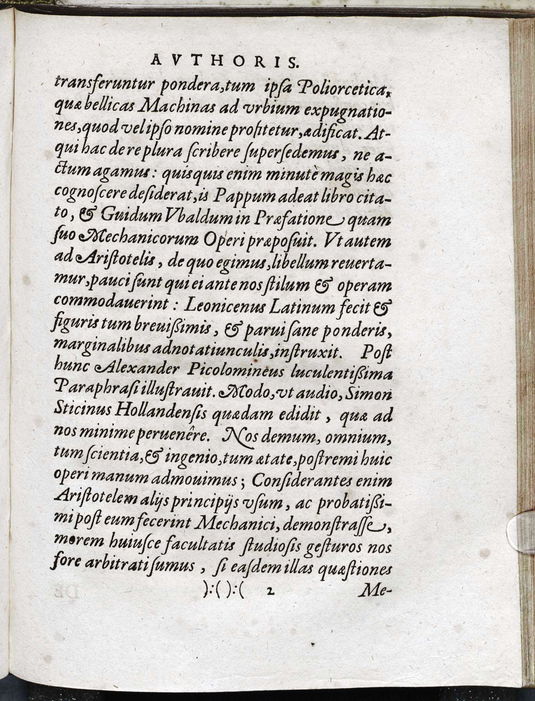 AVTHORIS.
transferuntur pondera, tum ipsa Poliorcetica,
quæ bellicas Machinas ad vrbium expugnatio-
nes, quod vel ipso nomine profitetur, ædificat. At-
qui hac de re plura scribere supersedemus, ne a-
ctum agamus: quisquis enim minutè magis hæc
cognoscere desiderat, is Pappum adeat libro cita-
to, & Guidum Vbaldum in Præfatione quam
suo Mechanicorum Operi præposuit. Vt autem
ad Aristotelis, de quo egimus, libellum reuerta-
mur, pauci sunt qui ei ante nos stilum & operam
commodauerint: Leonicenus Latinum fecit &
figuris tum breuißimis, & parui sane ponderis,
marginalibus adnotatiunculis, instruxit. Post
hunc Alexander Picolomineus luculentißima
Paraphrasi illustrauit. Modo, vt audio, Simon
Sticinus Hollandensis quædam edidit, quæ ad
nos minime peruenêre. Nos demum, omnium,
tum scientia, & ingenio, tum ætate, postremi huic
operi manum admouimus; Considerantes enim
Aristotelem alijs principijs vsum, ac probatißi-
mi post eum fecerint Mechanici, demonstrasse,
morem huiusce facultatis studiosis gesturos nos
fore arbitrati sumus, si easdem illas quæstiones
):( ):( 2 Me-